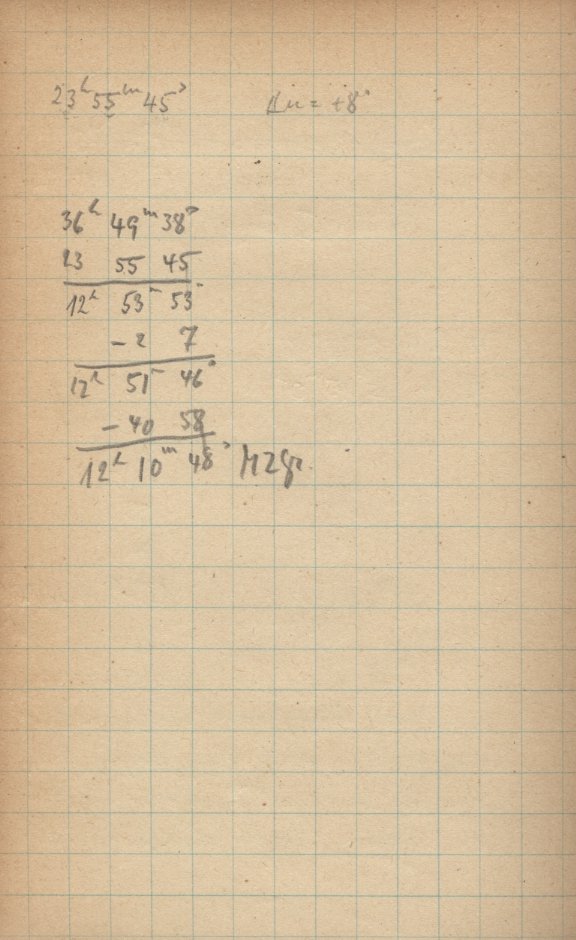 23ʰ 55ᵐ 45ˢ Δu = +8ˢ
36ʰ 49ᵐ 38ˢ
23 55 45
12ʰ 53ᵐ 53ˢ
- 2 7
12ʰ 51ᵐ 46ˢ
- 40 58
12ʰ 10ᵐ 48ˢ MZGr.